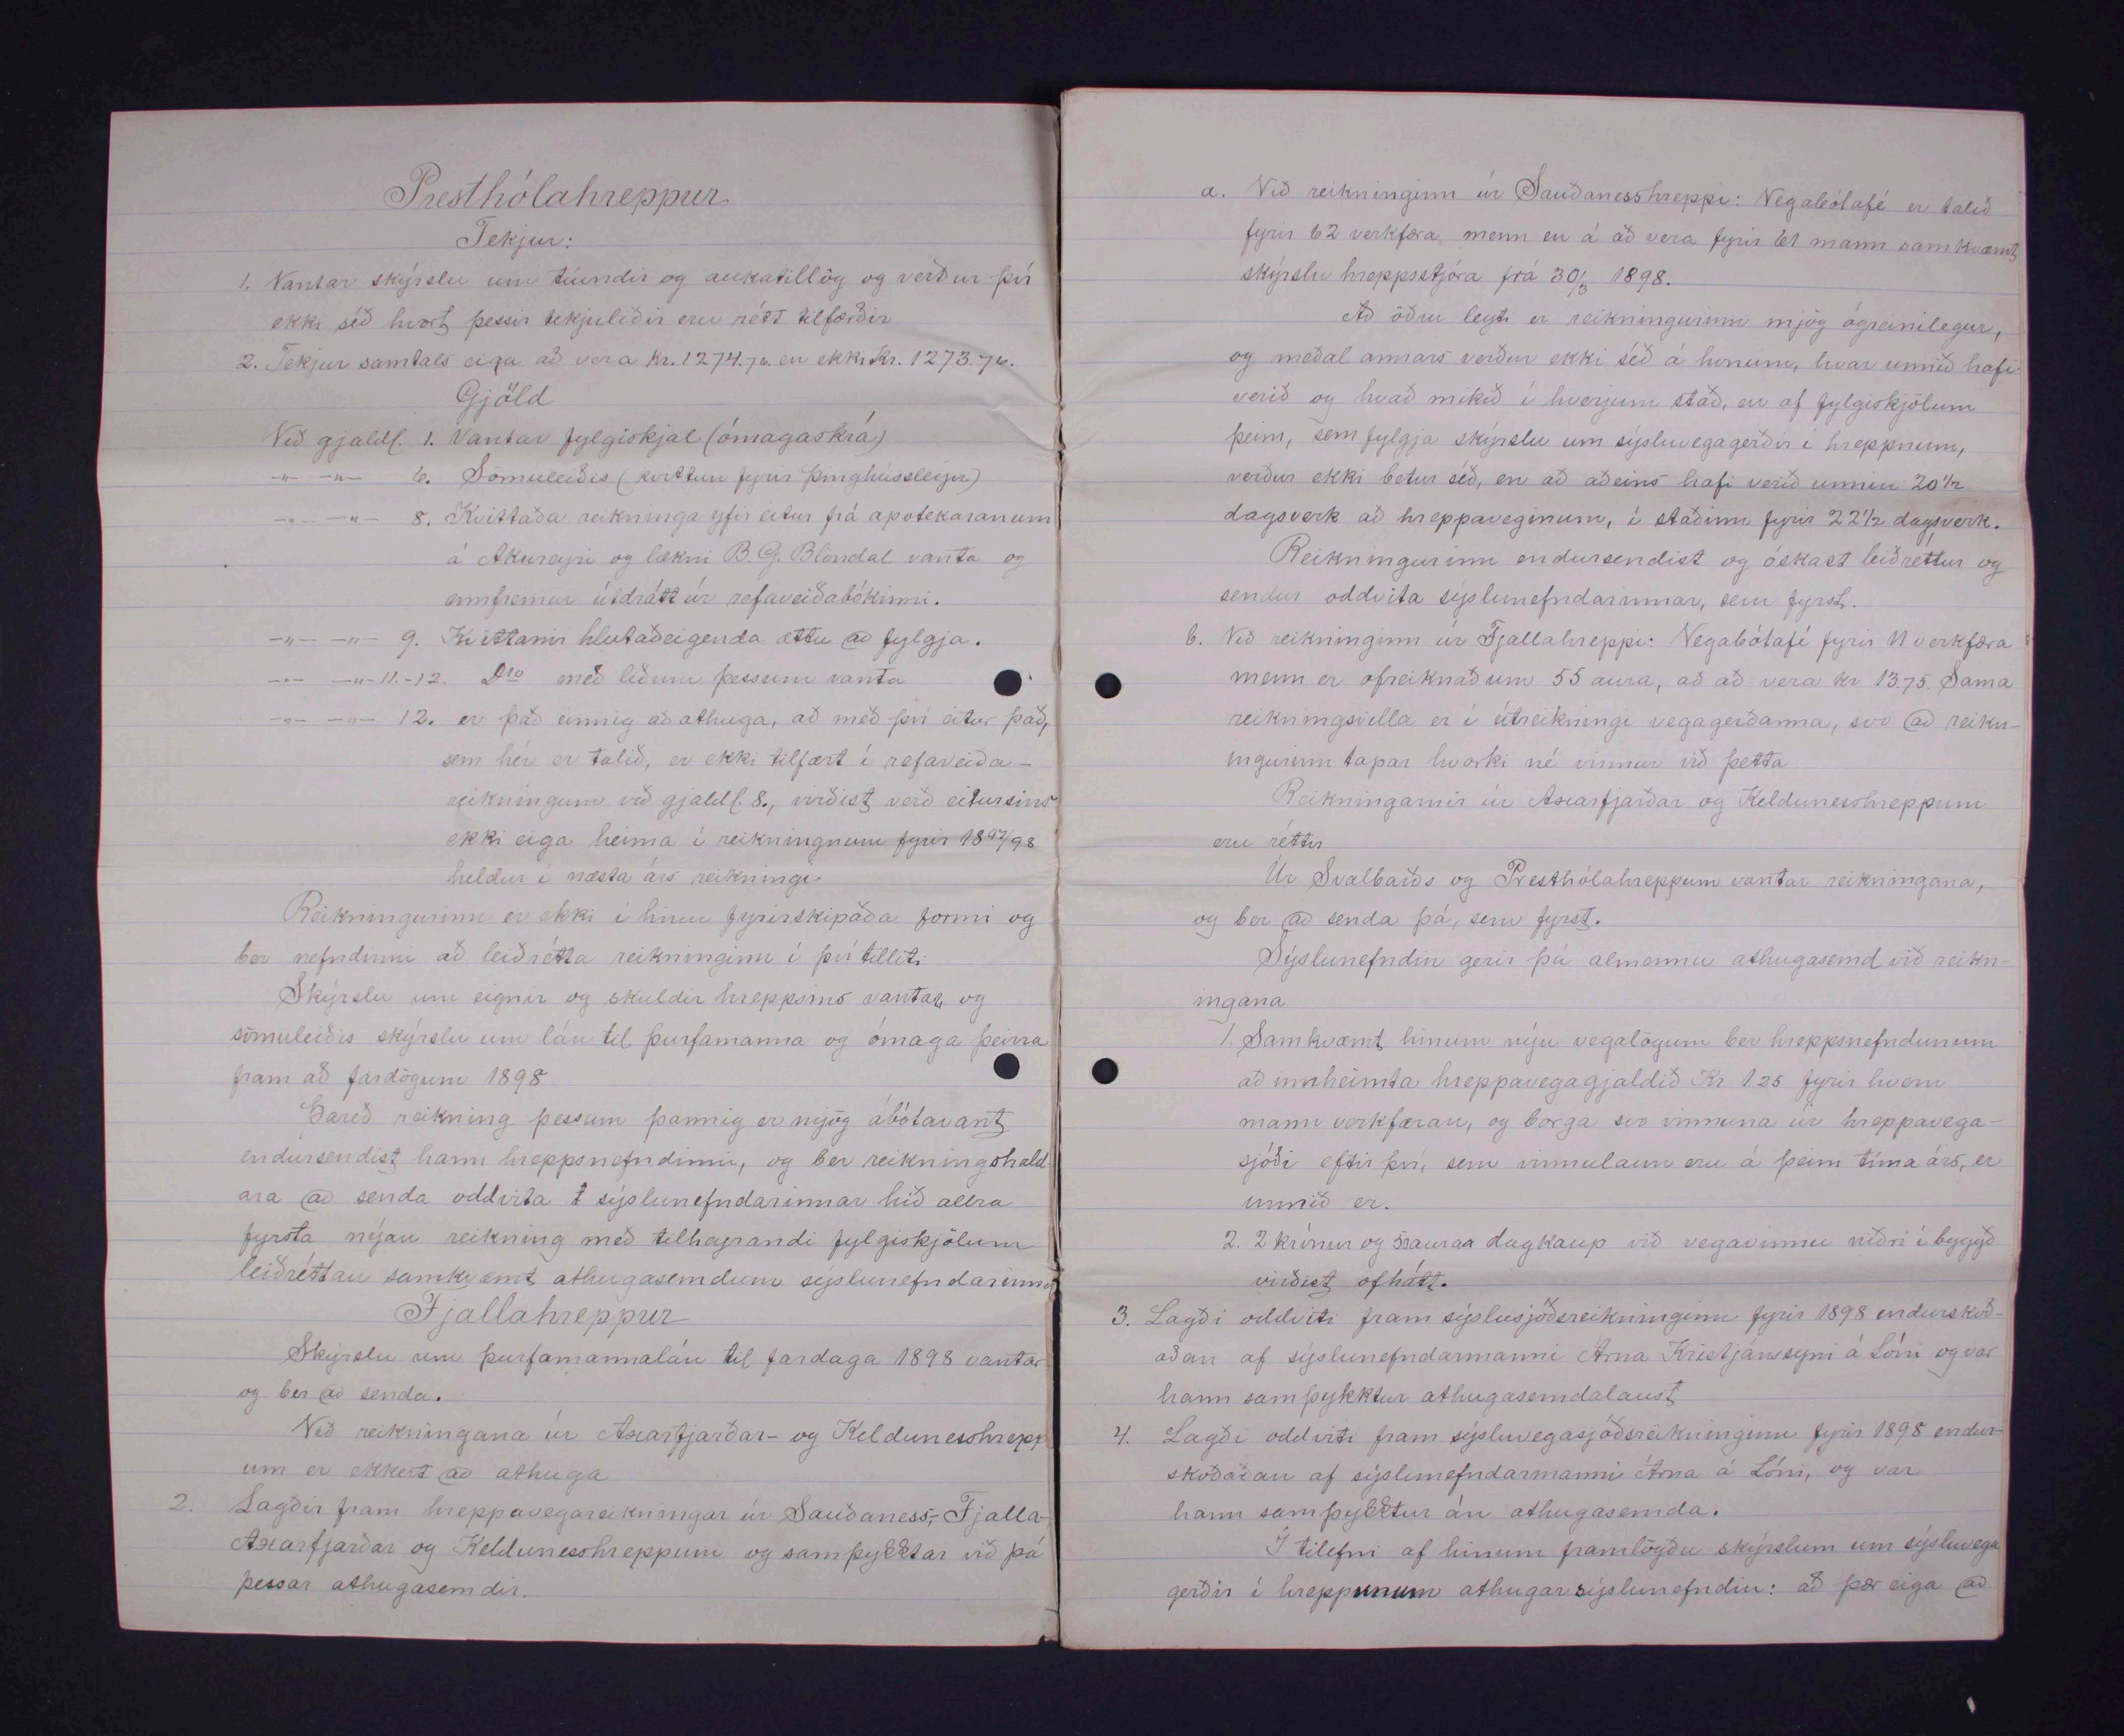 Presthólahreppur.
Tekjur:
1. Vantar skýrslu um tíundir og aukatillög og verður því
ekki séð hvort þessir tekjuliðir eru rétt tilfærðir
2. Tekjur samtals eiga að vera kr. 1274.76. en ekki Kr. 1273.76.
Gjöld
Við gjaldl. 1. Vantar fylgiskjal (ómagaskrá)
-"- -"- 6. Sömuleiðis (kvittun fyrir þinghússleigu)
-"- -"- 8. Kvittaða reikninga yfir eitur frá apotekaranum
á Akureyri og lækni B. G. Blöndal vanta og
ennfremur útdrátt úr refaveiðabókinni.
-"- -"- 9. Kvittanir hlutaðeigenda ættu að fylgja.
-"- -"- 11.-12. Dto með liðum þessum vanta
-"- -"- 12. er það einnig að athuga, að með því eitur það,
sem hér er talið, er ekki tilfært í refaveiða-
reikningum við gjaldl. 8., virðist verð eitursins
ekki eiga heima í reikningnum fyrir 1897/98
heldur í næsta árs reikningi.
Reikningurinn er ekki í hinu fyrirskipaða formi og
ber nefndinni að leiðrétta reikninginn í því tilliti.
Skýrslu um eignir og skuldir hreppsins vantar, og
sömuleiðis skýrslu um lán til þurfamanna og ómaga þeirra
fram að fardögum 1898.
Þareð reikning þessum þannig er mjög ábótavant,
endursendist hann hreppsnefndinni, og ber reikningshald-
ara að senda oddvita sýslunefndarinnar hið allra
fyrsta nýjan reikning með tilheyrandi fylgiskjölum
leiðréttan samkvæmt athugasemdum sýslunefndarinnar
Fjallahreppur
Skýrslu um þurfamannalán til fardaga 1898 vantar
og ber að senda.
Við reikningana úr Axarfjarðar- og Keldunesshrepp
um er ekkert að athuga
2. Lagðir fram hreppavegareikningar úr Sauðaness-, Fjalla-
Axarfjarðar og Keldunesshreppum og samþykktar við þá
þessar athugasemdir.
a. Við reikninginn úr Sauðanesshreppi: Vegabótafé er talið
fyrir 62 verkfæra menn en á að vera fyrir 61 mann samkvæmt
skýrslu hreppsstjóra frá 30/3 1898.
Að öðru leyti er reikningurinn mjög ógreinilegur,
og meðal annars verður ekki séð á honum, hvar unnið hafi
verið og hvað mikið í hverjum stað, en af fylgiskjölum
þeim, sem fylgja skýrslu um sýsluvegagerðir í hreppnum,
verður ekki betur séð, en að aðeins hafi verið unnin 20 1/2
dagsverk að hreppaveginum, í staðinn fyrir 22 1/2 dagsverk.
Reikningurinn endursendist og óskast leiðréttur og
sendur oddvita sýslunefndarinnar, sem fyrst.
b. Við reikninginn úr Fjallahreppi: Vegabótafé fyrir 11 verkfæra
menn er ofreiknað um 55 aura, að að vera kr 13.75. Sama
reikningsvilla er í útreikningi vegagerðanna, svo að reikn-
ingurinn tapar hvorki né vinnur við þetta
Reikningarnir úr Axarfjarðar og Keldunesshreppum
eru réttir
Úr Svalbarðs og Presthólahreppum vantar reikningana,
og ber að senda þá, sem fyrst.
Sýslunefndin gerir þá almennu athugasemd við reikn-
ingana
1. Samkvæmt hinum nýju vegalögum ber hreppsnefndunum
að innheimta hreppavegagjaldið Kr 1.25 fyrir hvern
mann verkfæran, og borga svo vinnuna úr hreppavega-
sjóði eftir því, sem vinnulaun eru á þeim tíma árs, er
unnið er.
2. 2 krónur og 50 aura dagkaup við vegavinnu niðri í byggð
virðist ofhátt.
3. Lagði oddviti fram sýslusjóðsreikninginn fyrir 1898 endurskoð-
aðan af sýslunefndarmanni Árna Kristjánssyni á Lóni og var
hann samþykktur athugasemdalaust
4. Lagði oddviti fram sýsluvegasjóðsreikninginn fyrir 1898 endur-
skoðaðan af sýslunefndarmanni Árna á Lóni, og var
hann samþykktur án athugasemda.
Í tilefni af hinum framlögðu skýrslum um sýsluvega
gerðir í hreppunum athugar sýslunefndin: að þær eiga að